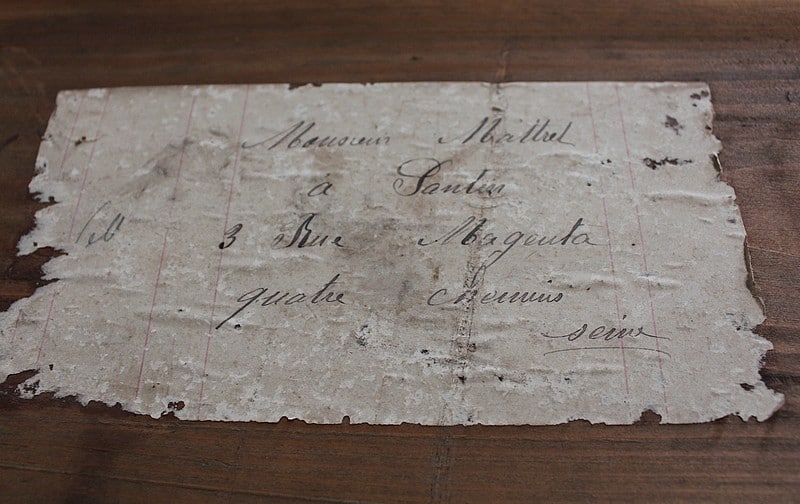 Monsieur Mallret
à Pantin
3 Rue Magenta.
quatre chemins
seine